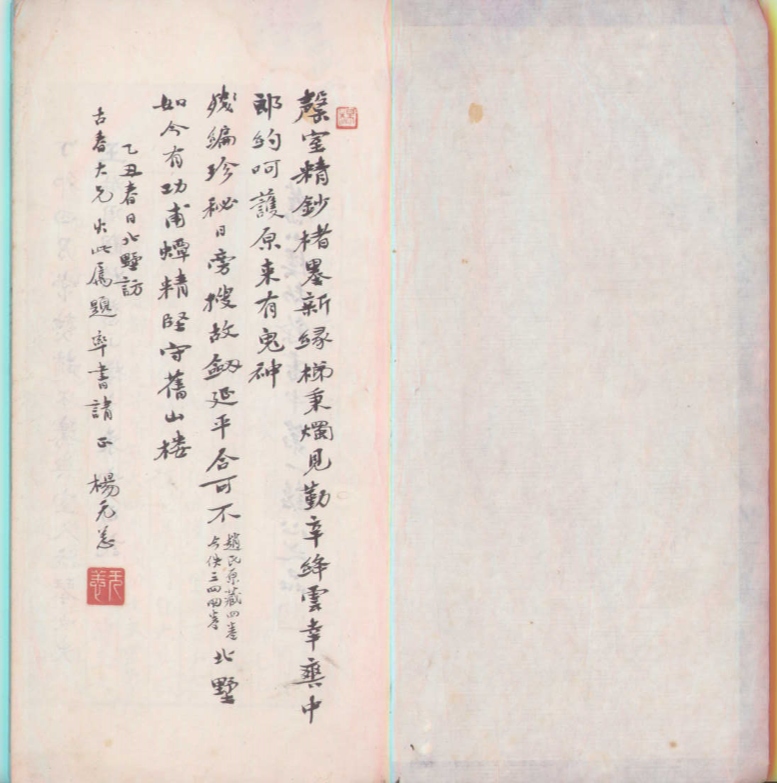 罄室精鈔楮墨新緣梯秉燭見勤辛絳雲幸與中
郎約呵護原来有鬼神
殘編珍秘日旁搜故劔延平合可不
趙氏原藏四卷
佚三四兩卷
北墅
如今有功甫蟫精堅守舊山樓
乙丑春日北墅訪
古春大兄出此屬題率書請正 楊无恙
无恙